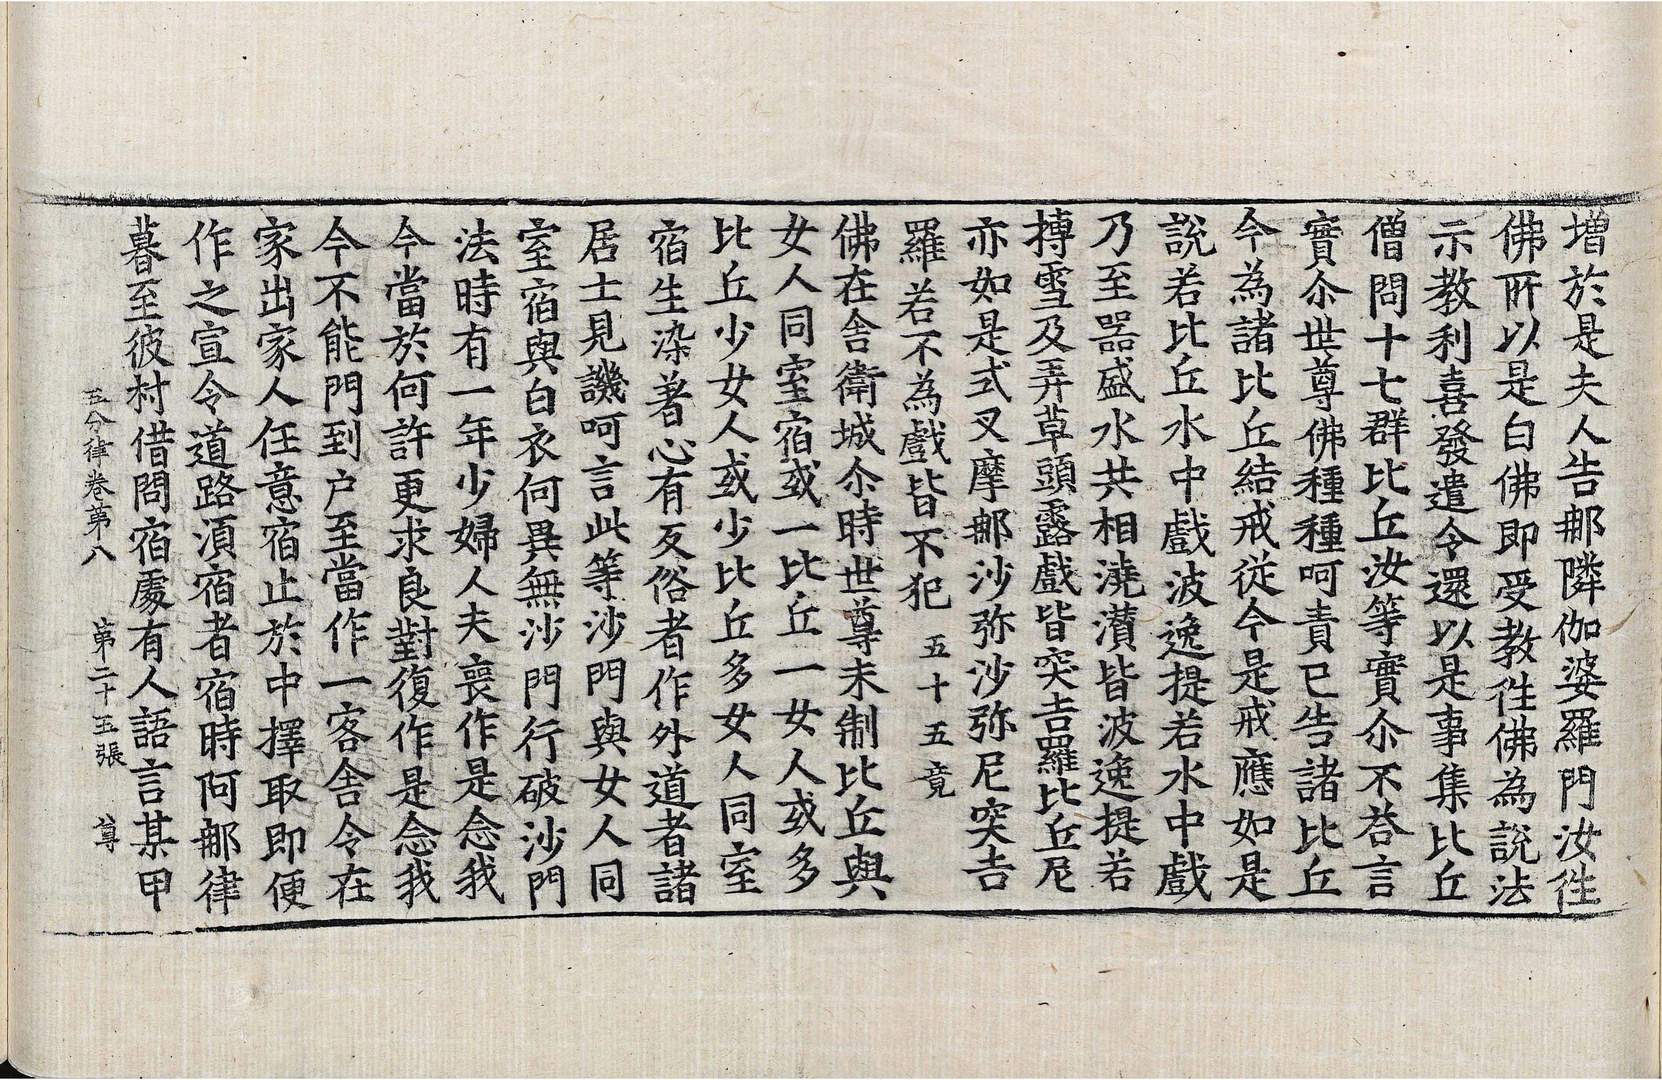 増於是夫人告那隣伽婆羅門汝徃
佛所以是白佛即受教徃佛為説法
示教利喜發遣令還以是事集比丘
僧問十七群比丘汝等實尒不荅言
實尒世尊佛種種呵責已告諸比丘
今為諸比丘結戒從今是戒應如是
說若比丘水中戲波逸提若水中戲
乃至器盛水共相澆灒皆波逸提若
搏雪及弄草頭露戲皆突吉羅比丘尼
亦如是式叉摩那沙弥沙弥尼突吉
羅若不為戲皆不犯 五十五竟
佛在舍衛城尒時世尊未制比丘與
女人同室宿或一比丘一女人或多
比丘少女人或少比丘多女人同室
宿生染著心有反俗者作外道者諸
居士見譏呵言此等沙門與女人同
室宿與白衣何異無沙門行破沙門
法時有一年少婦人夫喪作是念我
今當於何許更求良對復作是念我
今不能門到户至當作一客舍令在
家出家人任意宿止於中擇取即便
作之宣令道路湏宿者宿時阿那律
暮至彼村借問宿處有人語言某甲
五分律卷第八 第二十五張 尊